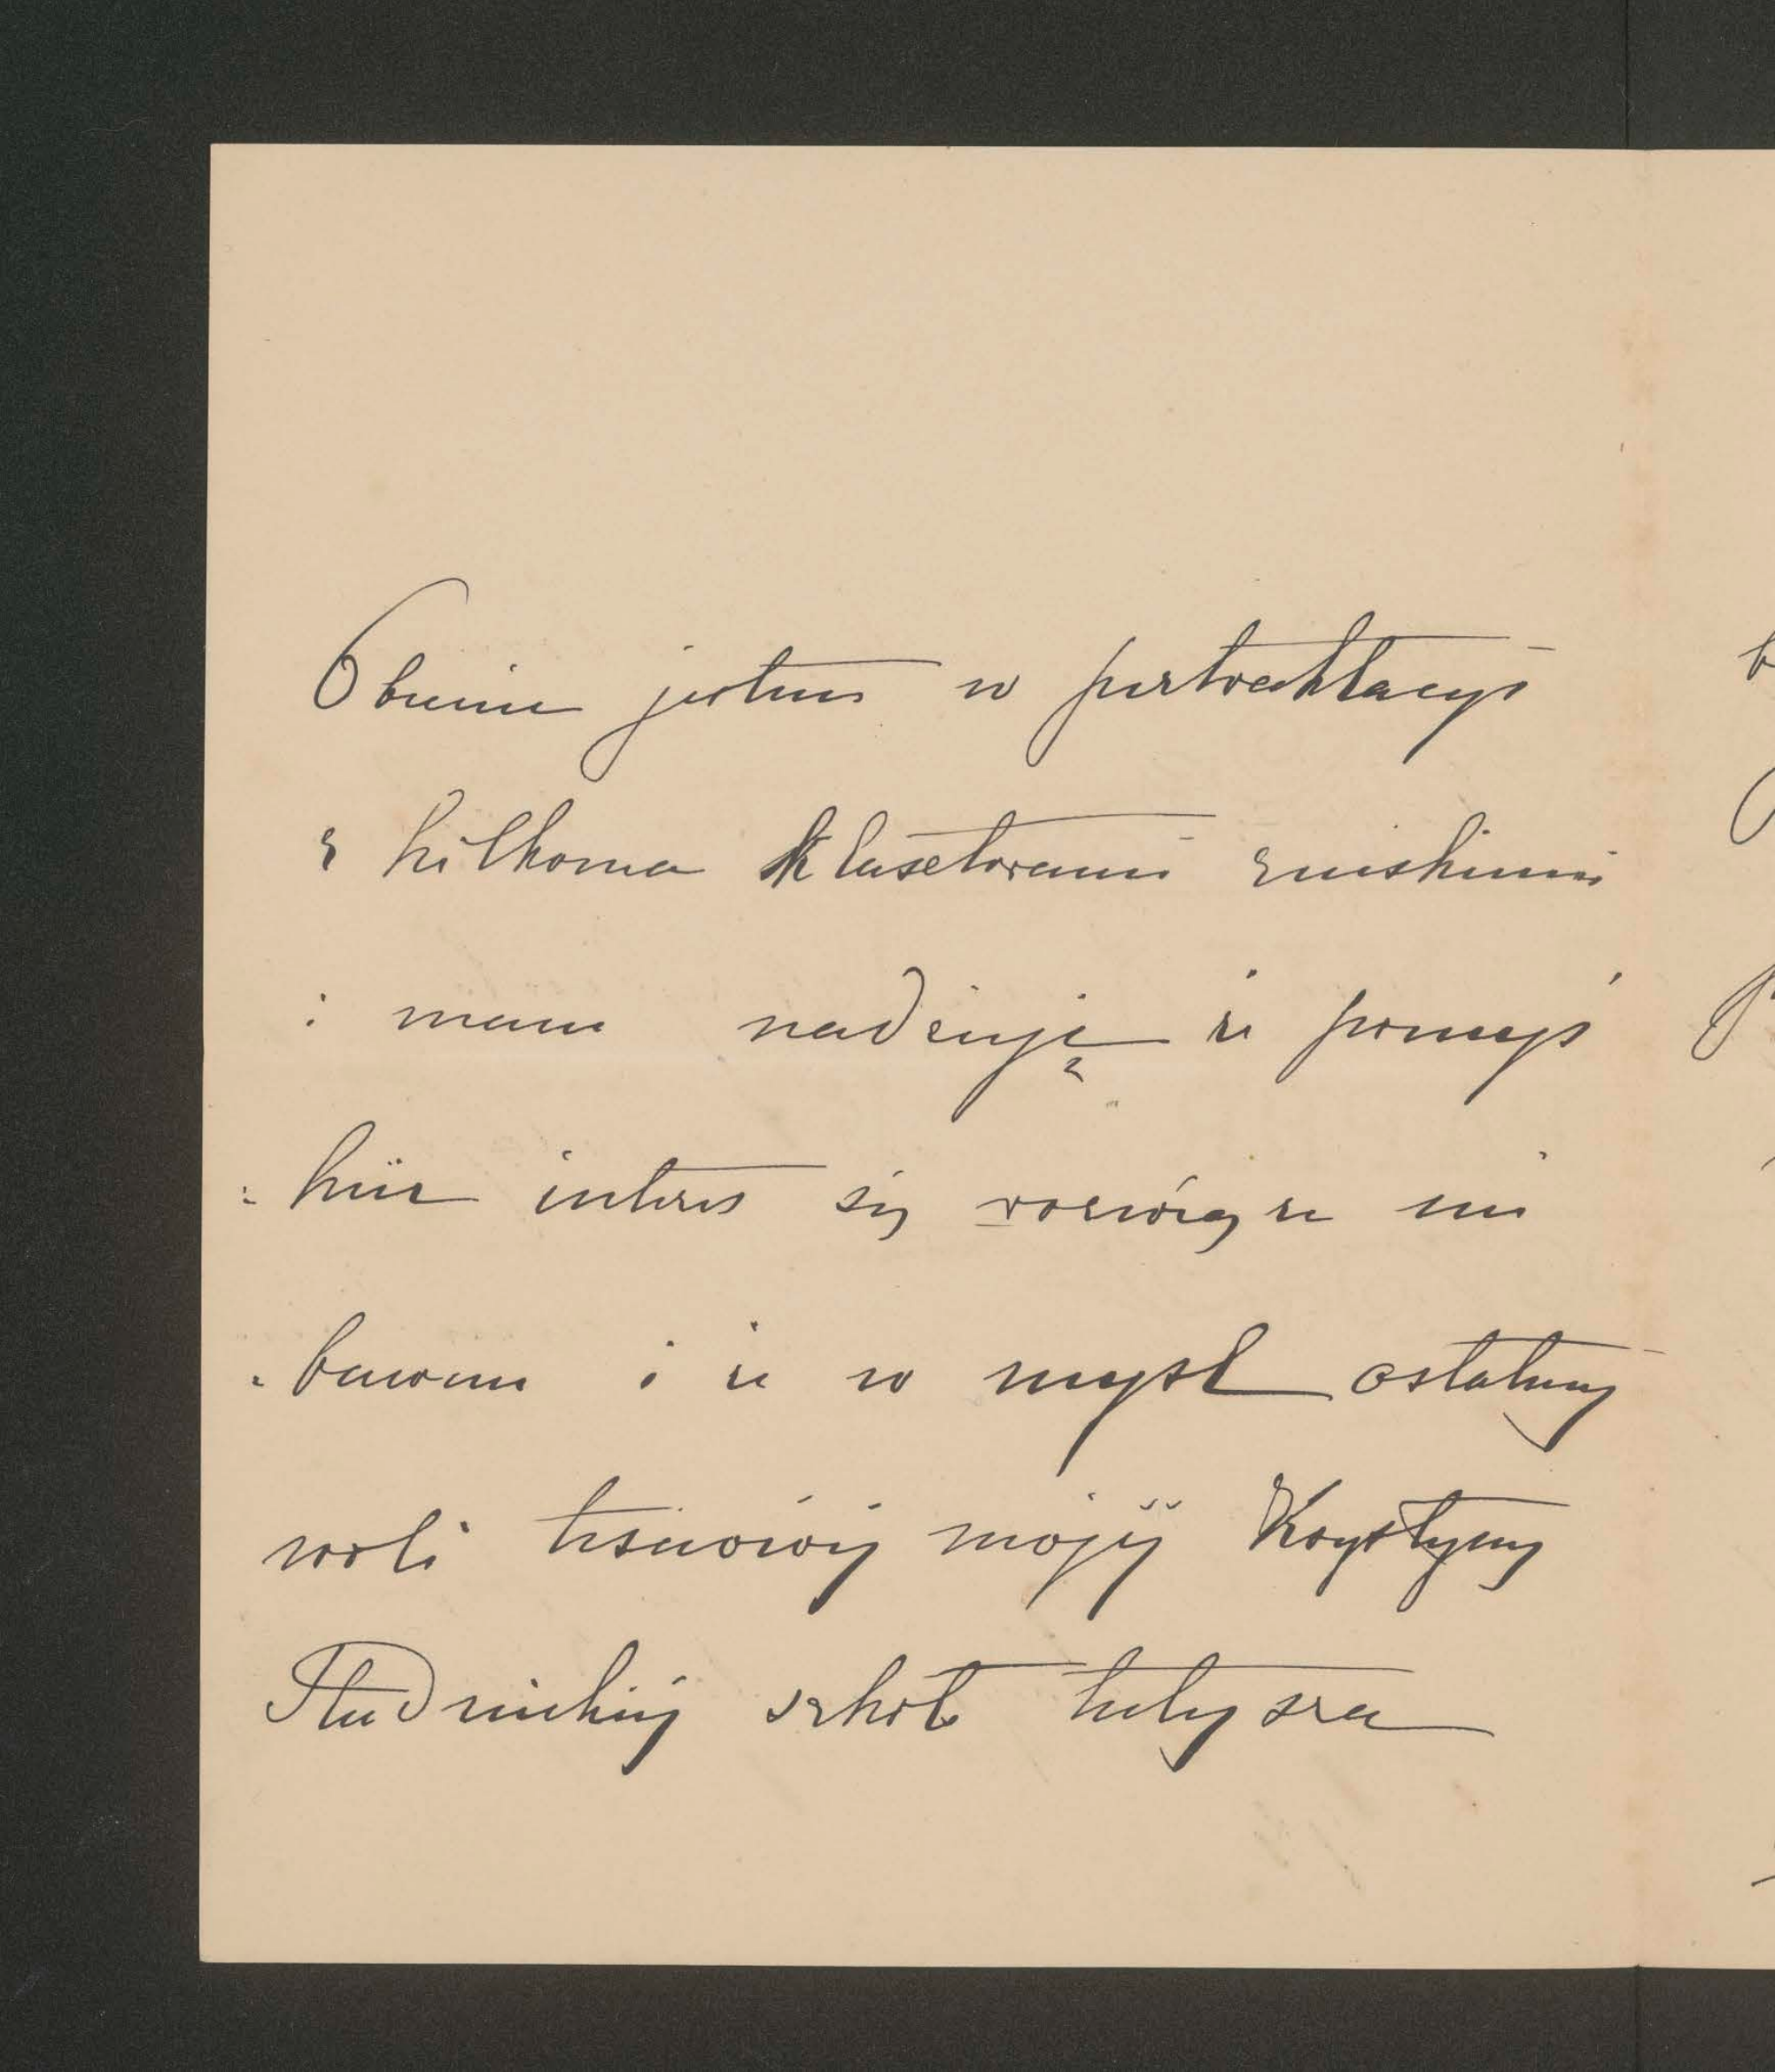 Obecnie jestem w pertraktacyi
z kilkoma klasztorami żeńskimi
i mam nadzieję że pomyś
: lnie interes się rozwiąże nie
: bawem i że w myśl ostatniej
woli teściowej mojej Krystyny
Studnickiej szkoła tutejsza